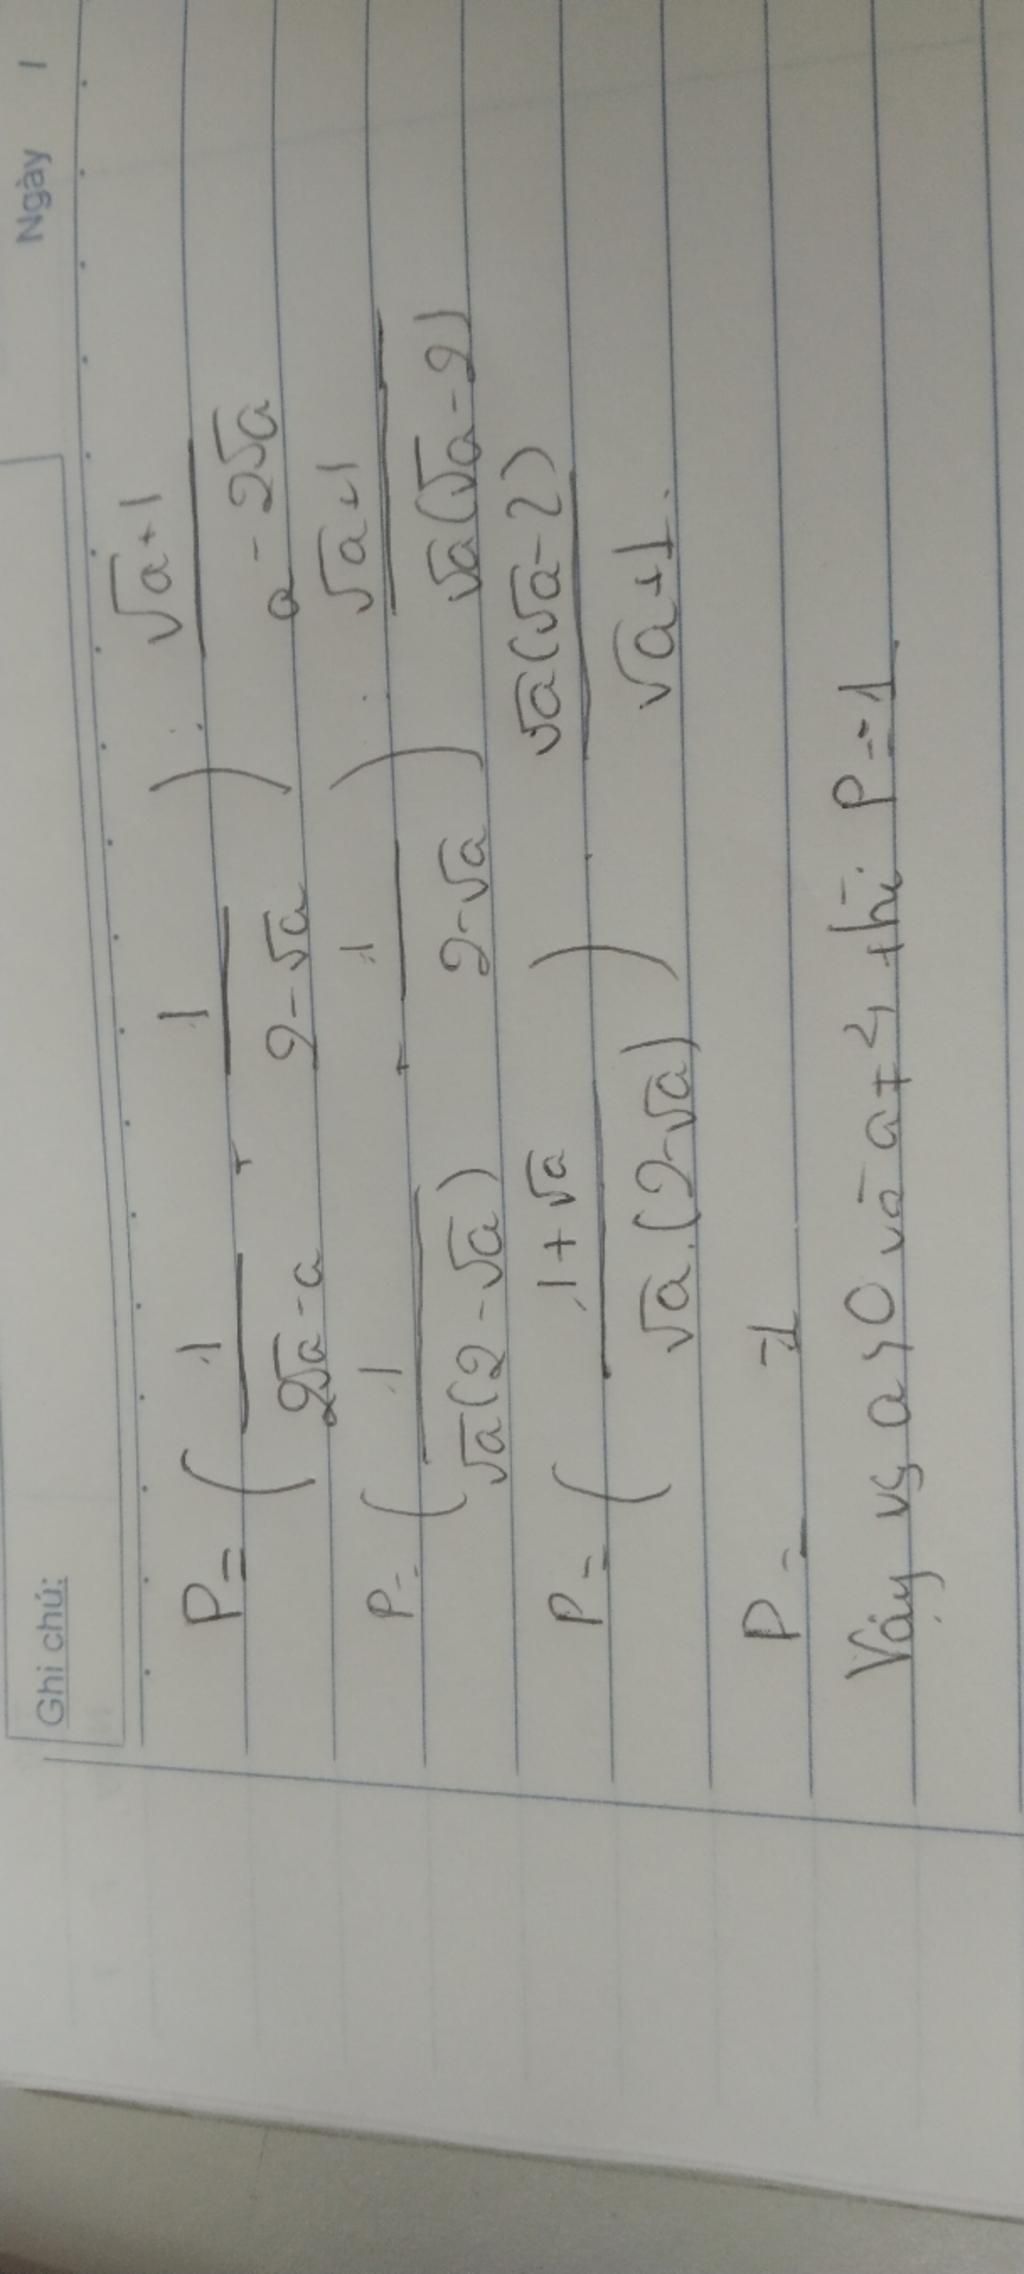 Ghi chú: Ngày /
P = ( 1/(2√a - a) + 1/(2-√a) ) : (√a+1)/(a - 2√a)
P = ( 1/(√a(2-√a)) + 1/(2-√a) ) : (√a+1)/(√a(√a-2))
P = ( (1+√a)/(√a.(2-√a)) ) . (√a(√a-2))/(√a+1)
P = -1
Vậy vs a>0 và a≠4 thì P=-1